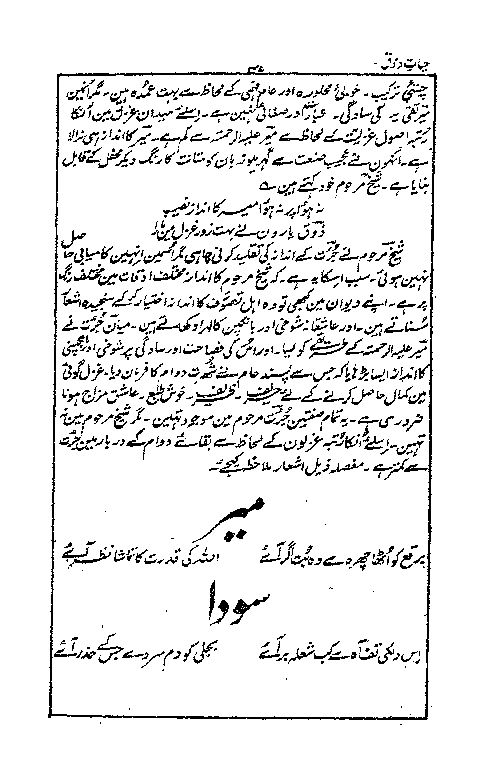 حیات ذوق
چستیٔ ترکیب۔ خوبیٔ محاورہ اور عام فہمی کے لحاظ سے بہت عمدہ ہین۔ مگر اُنمین
میر تقی کی سادگی۔ صفائی نہین ہے۔ اسلئے میدان غزل مین اُنکا
رُتبہ اصول غزلیت کے لحاظ سے میر علیہ الرحمتہ سے کم ہے۔ میر کا انداز ہی نرالا
ہے۔ انہون نے عجیب صنعت سے گھریلو زبان کو متانت کا رنگ دیکر محفل کے قابل
بنایا ہے۔ شیخ مرحوم خود کہتے ہین ؎
نہ ہوا پر نہ ہوا میر کا انداز نصیب
ذوق یارون نے بہت زور غزل مین مارا
شیخ مرحوم نے جرأت کے انداز کی تقلید کرنی چاہی مگر اُسمین انہین کامیابی حاصل
نہین ہوئی۔ سبب اسکا یہ ہے۔ کہ شیخ مرحوم کا انداز مختلف اوقات مین مختلف رنگ
پر ہے۔ اپنے دیوان مین کبھی تو وہ اہل تصوف کا انداز اختیار کر کے سنجیدہ اشعار
سُناتے ہین۔ اور عاشقانہ شوخی اور بانکپن کا لہرا دکھاتے ہین۔ میان جرأت نے
میر علیہ الرحمتہ کے طریقے کو لیا۔ اور اُس کی فصاحت اور سادگی پر شوخی اور بانکپن
کا انداز ایسا بڑھایا کہ جس سے پسند عام نے شہرت دوام کا فرمان دیا۔ غزل گوئی
مین کمال حاصل کرنے کے لئے حریف ظریف۔ خوش طبع۔ عاشق مزاج ہونا
ضروری ہے۔ یہ تمام صفتین جرأت مرحوم مین موجود تہین۔ مگر شیخ مرحوم مین نہ
تہین۔ اسلئے اُنکا رُتبہ غزلون کے لحاظ سے بقائے دوام کے دربار مین جرأت
سے کمتر ہے۔ مفصلہ ذیل اشعار ملاحظہ کیجئے۔
میر
برقع کو اُٹھا چہرہ سے وہ بت اگر آئے اللہ کی قدرت کا تماشا نظر آئے
سودا
اس دلکی تف آہ سے کب شعلہ بر آئے بجلی کو دم سرد سے جس کے حذر آئے